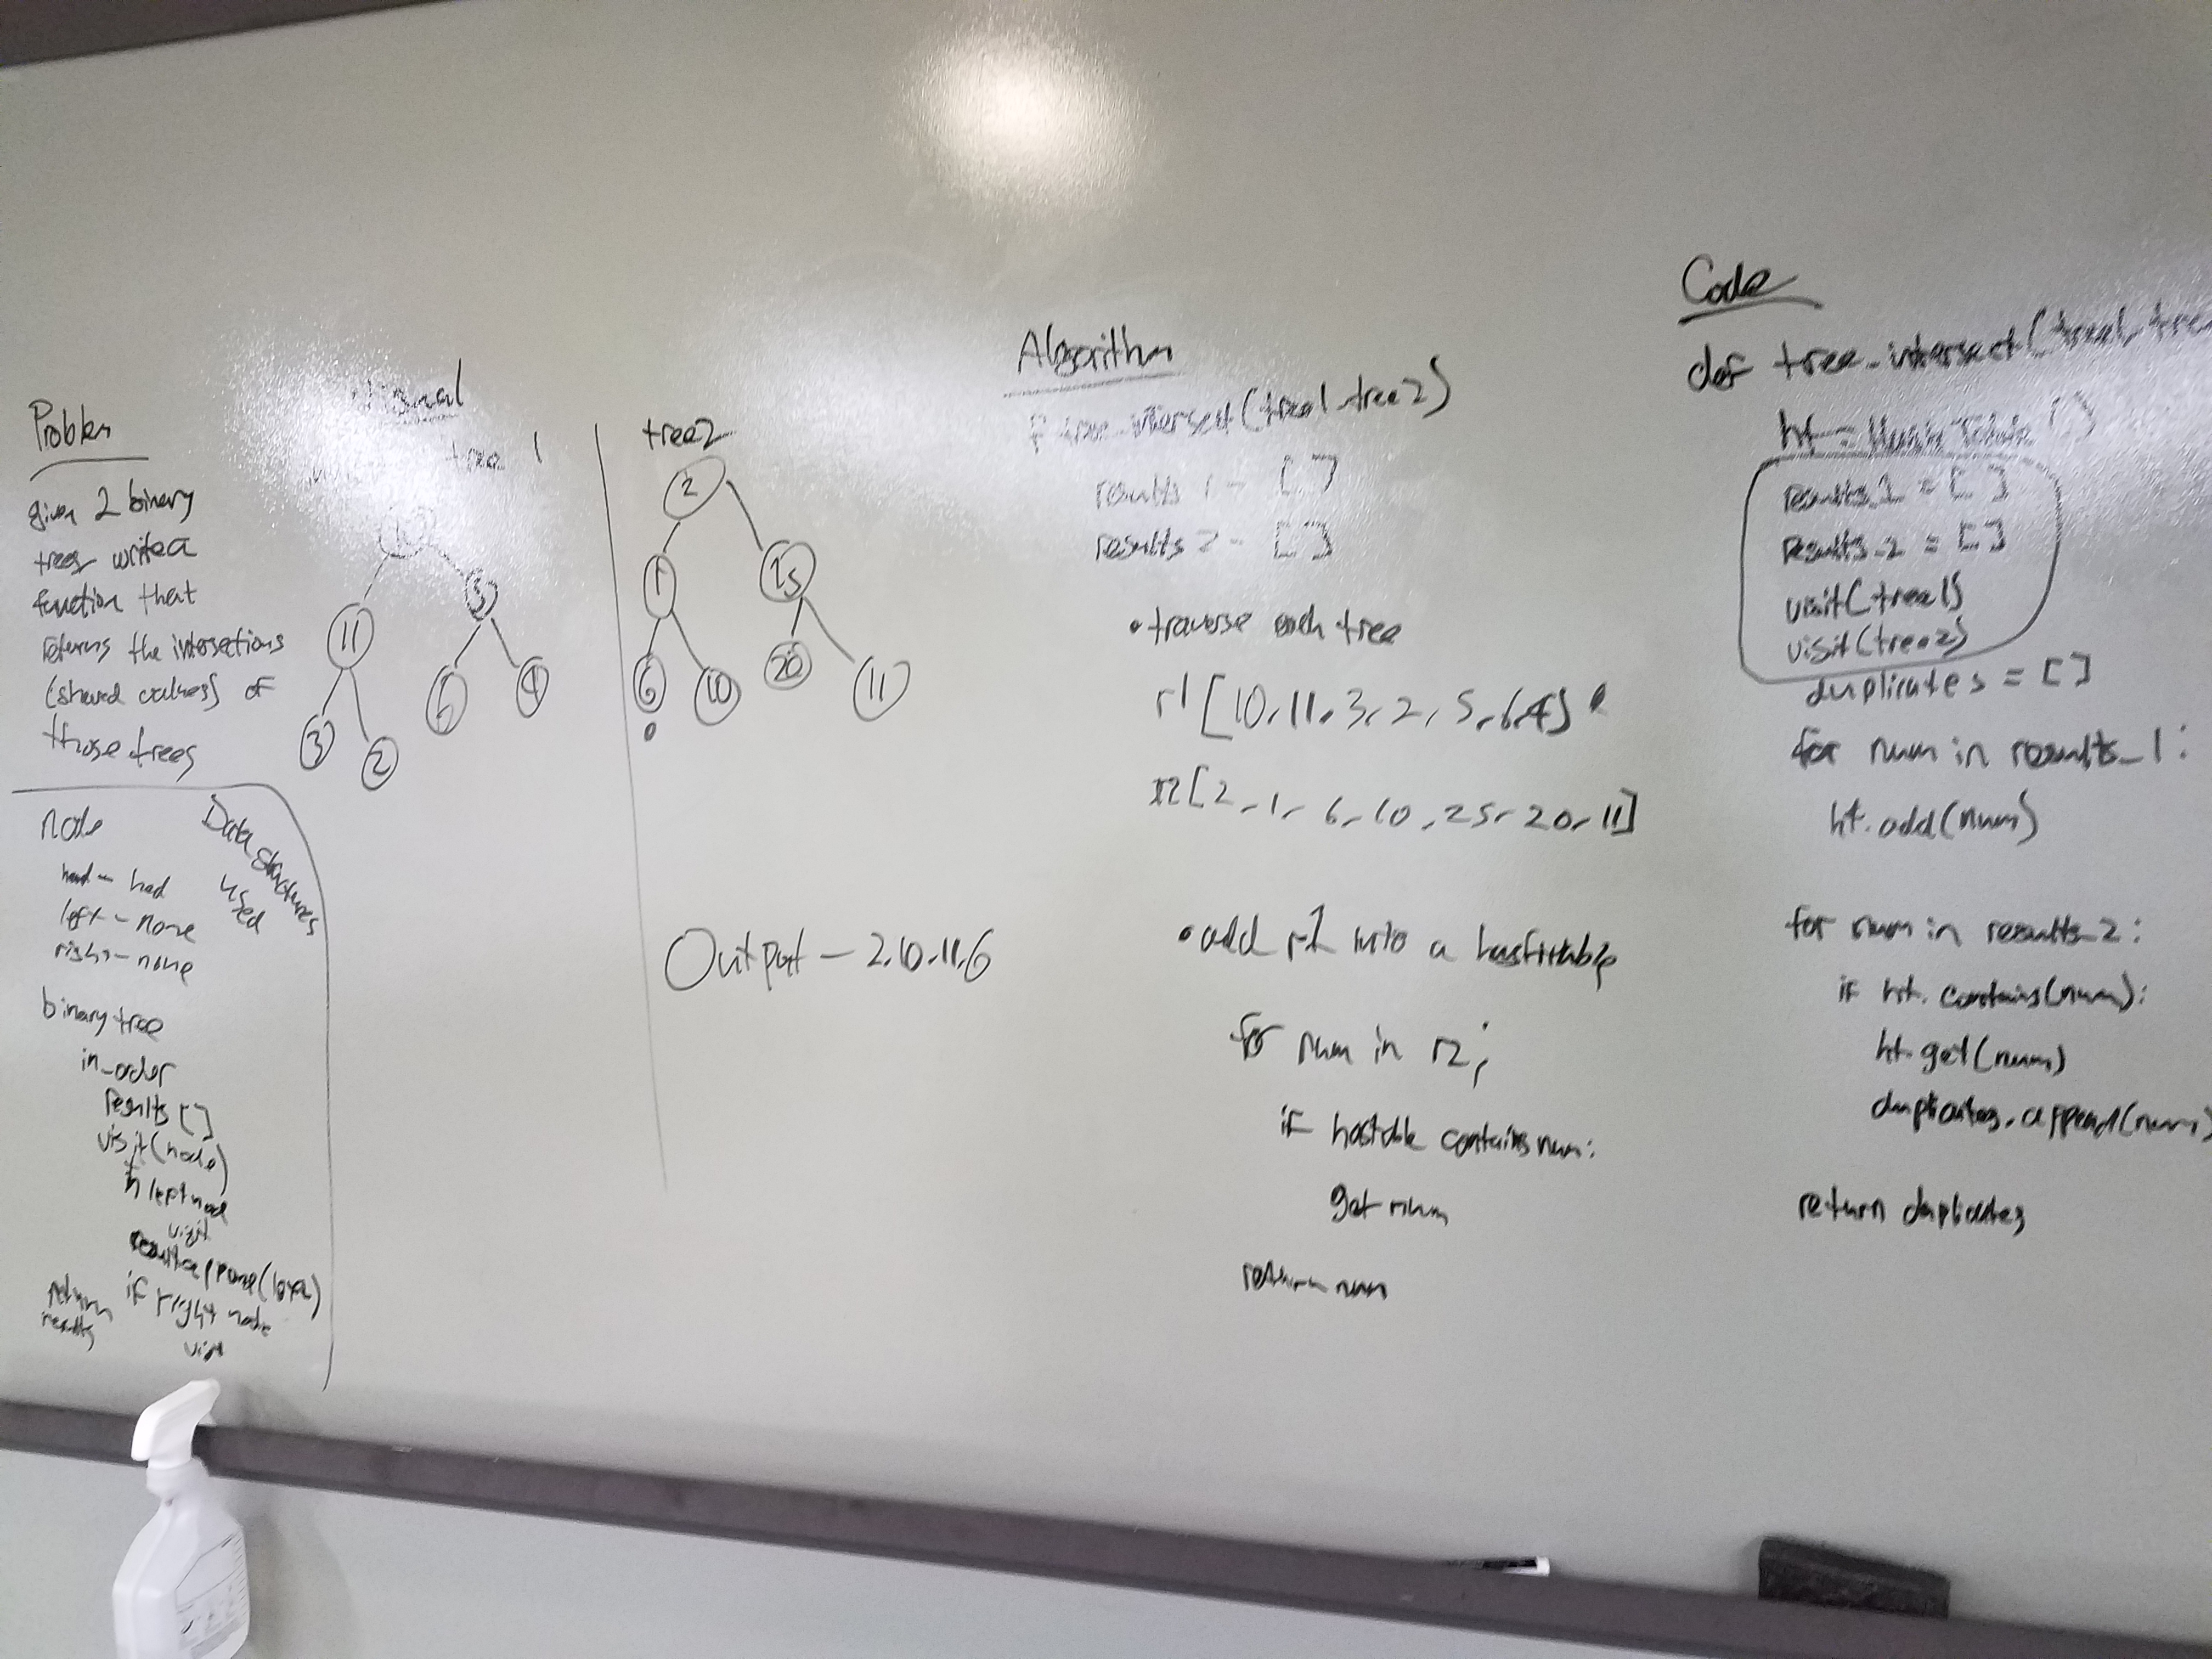 Problem
given 2 binary
trees write a
function that
returns the intersections
(shared values) of
those trees
node
left - none
right - none
Data structures
used
binary tree
in_order
results []
visit(node)
visit
if right node
return
results
tree 1
11
5
6
4
3
2
tree2
2
1
25
6
10
20
11
Output - 2,10,11,6
Algorithm
tree_intersect(tree1, tree2)
results 1 - []
results 2 - []
• traverse each tree
r1 [10, 11, 3, 2, 5, 6, 4]
r2 [2, 1, 6, 10, 25, 20, 11]
• add r1 into a hashtable
for num in r2;
if hashtable contains num:
get num
return num
Code
def tree_intersect(tree1, tree
ht = HashTable()
results_1 = []
results_2 = []
visit(tree1)
visit(tree2)
duplicates = []
for num in results_1:
ht.add(num)
for num in results_2:
if ht.contains(num):
ht.get(num)
duplicates.append(num)
return duplicates